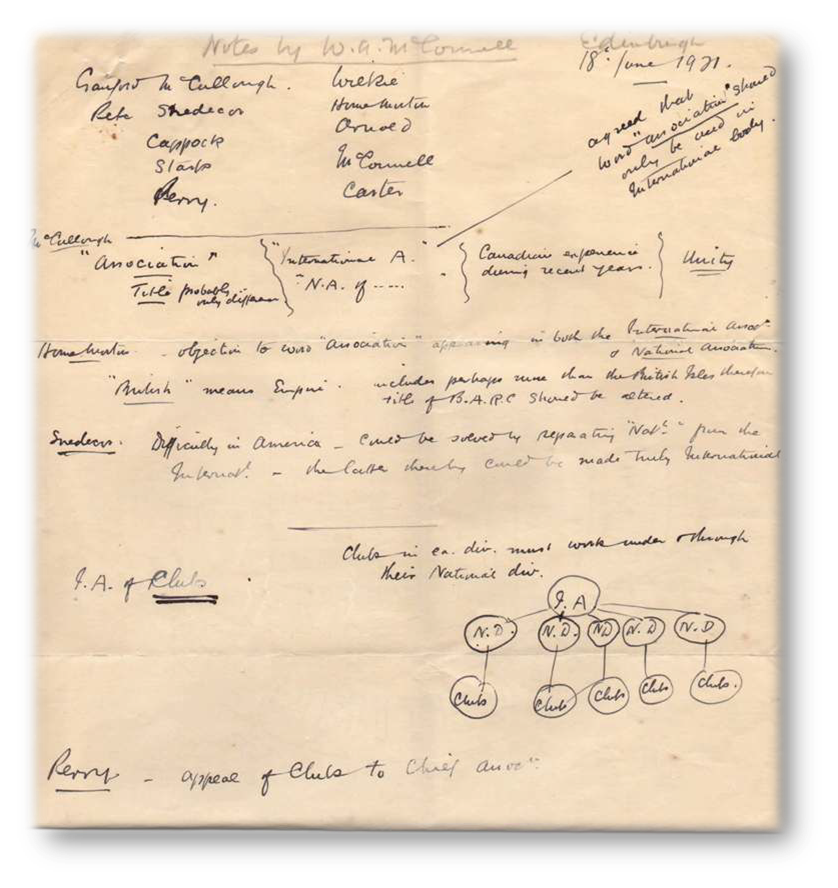 Notes by W.A. McConnell
Edinburgh
18th June 1921.
Crawford McCullough.
Wilkie
Pete Snedecor
Home Morton
Cappock
Arnold
Starks
McConnell
Perry.
Carter
agreed that
word "association" should
only be used in
International body.
McCullough
"Association"
Title probably
only different
"International A."
"N.A. of .....
Canadian experience
during recent years.
Unity
Home Morton - objection to word "Association" appearing in both the International Assocn
& National Association.
"British" means Empire. includes perhaps more than the British Isles therefore
title of B.A.R.C should be altered.
Snedecor. Difficulty in America - could be solved by separating "Natl." from the
Internatl. - the latter thereby could be made truly International
Clubs in ea. div. must work under & through
their National div.
I.A. of Clubs
I.A
N.D. N.D. ND N.D N.D
Clubs Clubs Clubs Clubs Clubs.
Perry - appeal of Clubs to Chief Assocn.